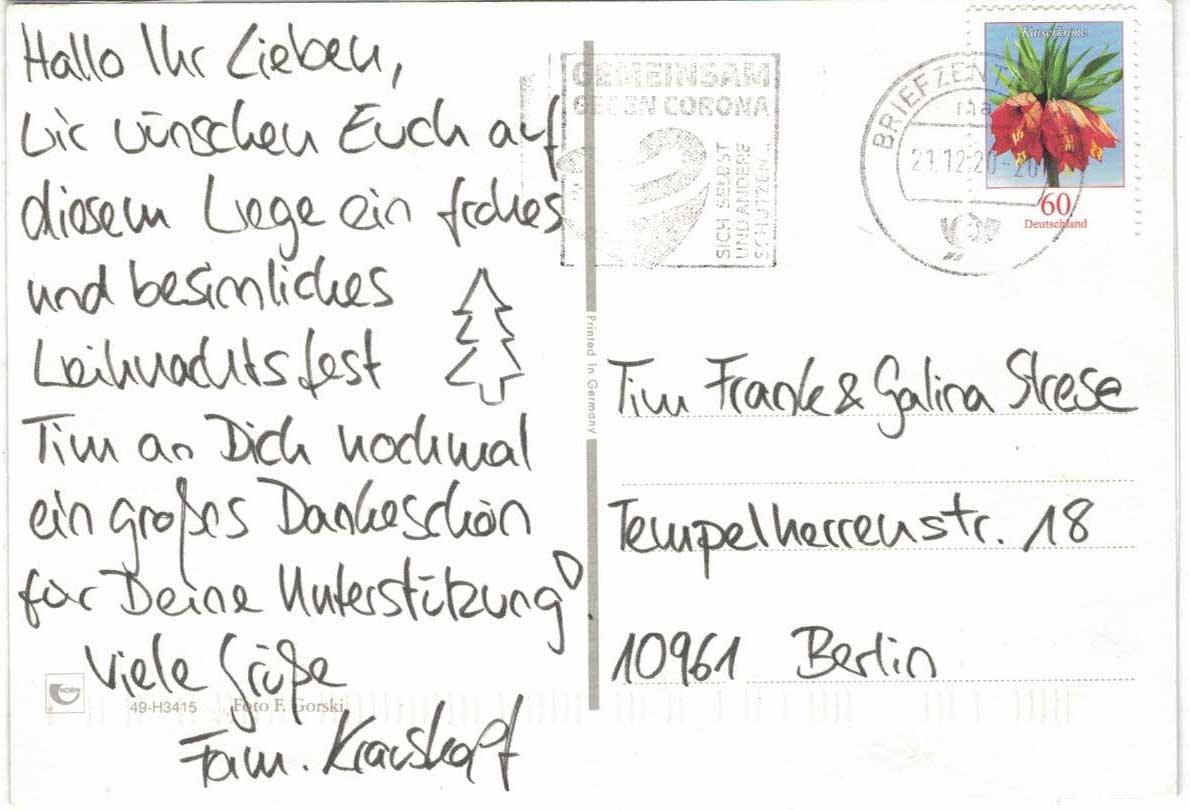 Hallo Ihr Lieben,
wir wünschen Euch auf
diesem Wege ein frohes
und besinnliches
Weihnachtsfest
Tim an Dich nochmal
ein großes Dankeschön
für Deine Unterstützung!
Viele Grüße
Fam. Krauskopf
HORN
49-H3415
Foto F. Gorski
Printed in Germany
GEMEINSAM
GEGEN CORONA
SICH SELBST
UND ANDERE
SCHÜTZEN...
BRIEFZENT
21.12.20-20
Kaiserkrone
60
Deutschland
Tim Frank & Galina Strese
Tempelherrenstr. 18
10961 Berlin